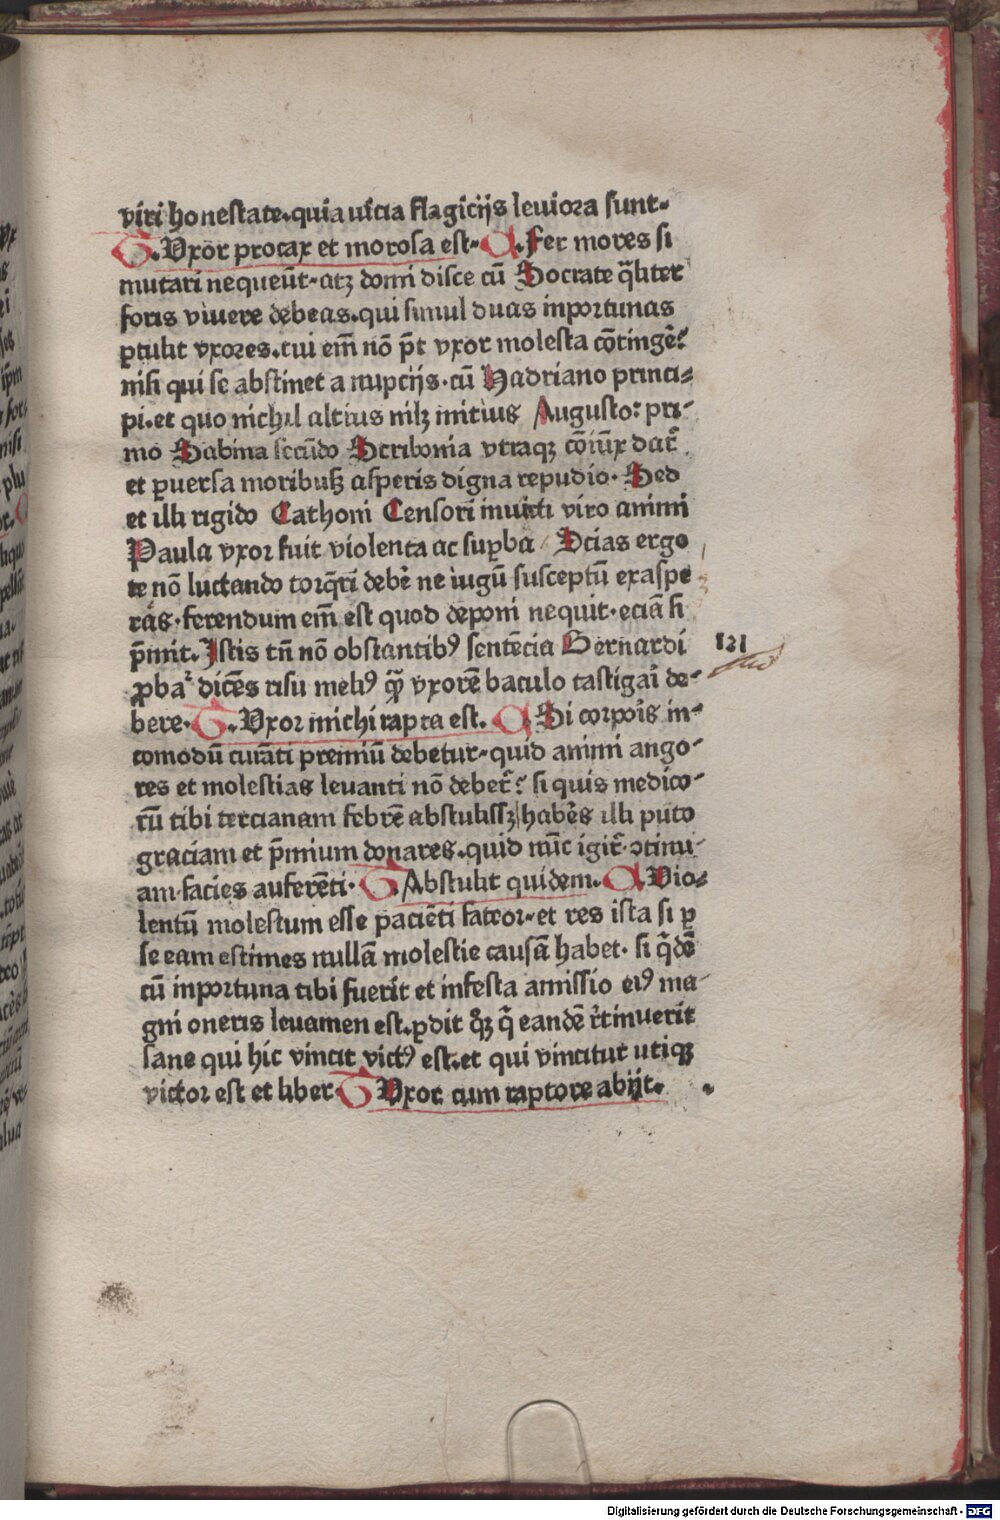 viri honestate.quia uicia flagicijs leuiora sunt.
T.Vxor procax et morosa est. A.Fer mores si
mutari nequeūt.atꝫ domi disce cū Socrate q̄liter
foris viuere debeas.qui simul duas inportunas
ꝑtulit vxores.cui em̄ nō p̄t vxor molesta cōtingē?
nisi qui se abstinet a nupcijs.cū Hadriano princi-
pi.et quo nichil altius nilꝫ mitius Augusto: pri-
mo Sabina secūdo Scribonia vtraqꝫ cōiūx dat̄
et ꝑuersa moribusꝫ asperis digna repudio. Sed
et illi rigido Cathoni Censori inuicti viro animi
Paula vxor fuit violenta ac suꝑba / Scias ergo
te nō luctando torq̄ri debē ne iugū susceptū exaspe
rās.ferendum em̄ est quod deponi nequit.eciā si
p̄mit.Istis tn̄ nō obstantibꝰ sentēcia Bernardi
ꝓbat᷑ dicēs risu meliꝰ qꝫ̄ vxorē baculo castigari de-
bere. T.Vxor michi rapta est. A Si corpoīs in-
comodū curāti premiū debetur.quid animi ango-
res et molestias leuanti nō debet̄? si quis medico-
rū tibi tercianam febrē abstulissꝫ habēs illi puto
graciam et p̄mium donares.quid nūc igit̄ ↄtinu-
am.facies auferēti. T.Abstulit quidem. A Vio-
lentū molestum esse pacienti fateor.et res ista si ꝑ
se eam estimes nullā molestie causā habet. si q̄dē
cū inportuna tibi fuerit et infesta amissio eiꝰ ma-
gni oneris leuamen est.ꝑdit qꝫ q̄ eandē r̄tinuerit
sane qui hic vincit victꝰ est.et qui vincitur utiqꝫ
victor est et liber. T Vxor cum raptore abijt.
121
Digitalisierung gefördert durch die Deutsche Forschungsgemeinschaft - DFG